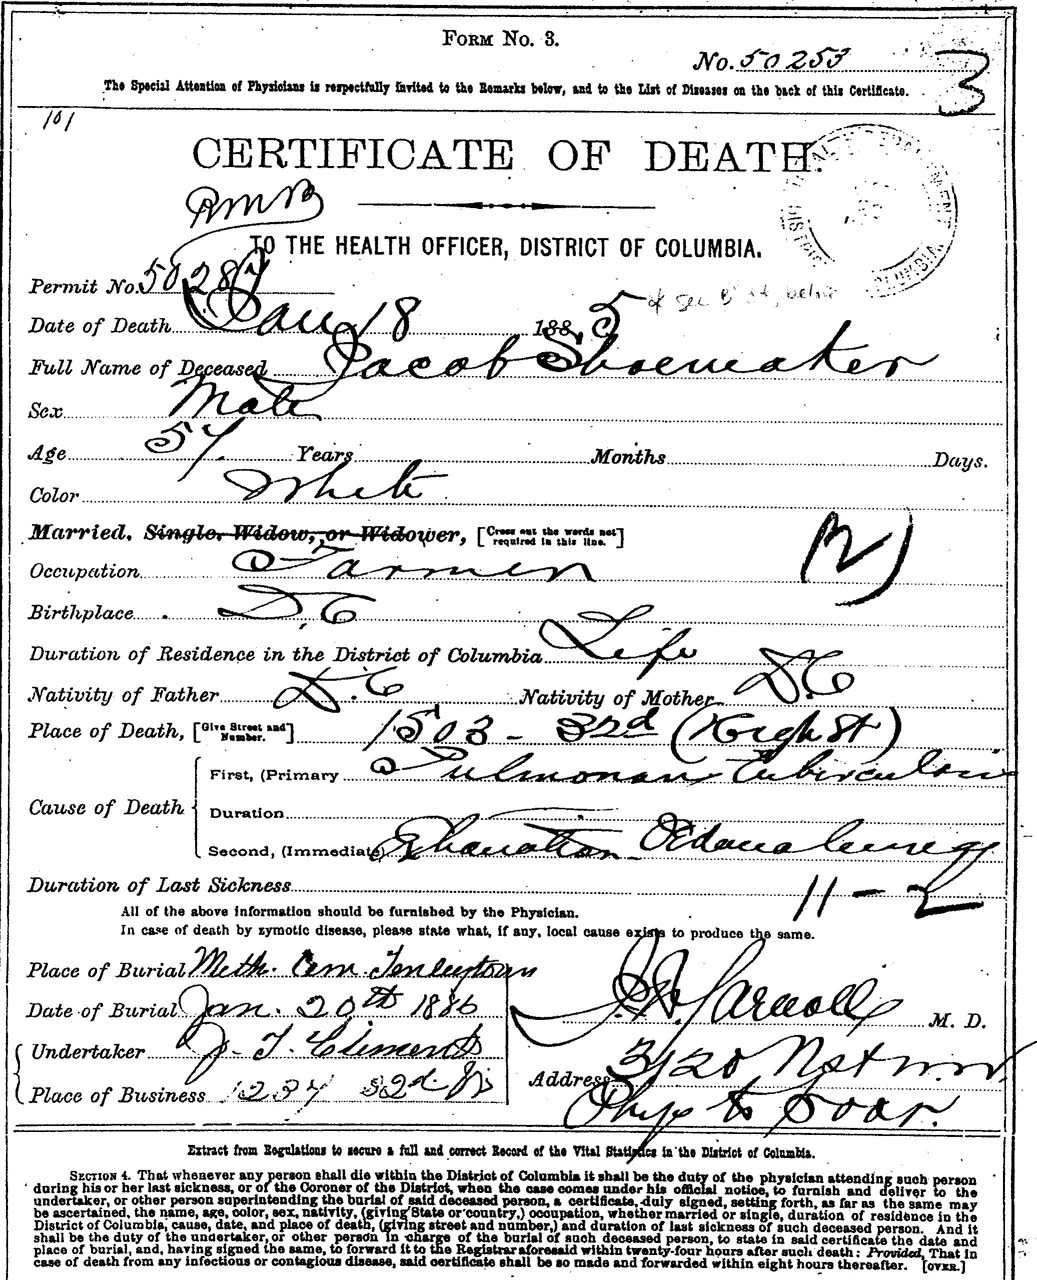 FORM NO. 3.
No. 50253
3
The Special Attention of Physicians is respectfully invited to the Remarks below, and to the List of Diseases on the back of this Certificate.
101
CERTIFICATE OF DEATH.
RMB
TO THE HEALTH OFFICER, DISTRICT OF COLUMBIA.
Permit No. 50287
Date of Death Jan 18 1885
Full Name of Deceased Jacob Shoemaker
Sex Male
Age 57 Years Months Days.
Color White
Married, Single, Widow, or Widower, [Cross out the words not required in this line.]
Occupation Farmer
Birthplace D.C
Duration of Residence in the District of Columbia Life
Nativity of Father D.C Nativity of Mother D.C
Place of Death, [Give Street and Number.] 1503 - 32d (High St)
Cause of Death
First, (Primary Pulmonary Tuberculosis
Duration
Second, (Immediate) Exhaustion Oedema
Duration of Last Sickness 11-2
All of the above information should be furnished by the Physician.
In case of death by zymotic disease, please state what, if any, local cause exists to produce the same.
Place of Burial Meth. Cem. Tenleytown
Date of Burial Jan. 20th 1886
M. D.
Undertaker J. T. Clements
Address 3120 N st n.w.
Place of Business 1237 32d St
Phys to Poor.
Extract from Regulations to secure a full and correct Record of the Vital Statistics in the District of Columbia.
SECTION 4. That whenever any person shall die within the District of Columbia it shall be the duty of the physician attending such person
during his or her last sickness, or of the Coroner of the District, when the case comes under his official notice, to furnish and deliver to the
undertaker, or other person superintending the burial of said deceased person, a certificate, duly signed, setting forth, as far as the same may
be ascertained, the name, age, color, sex, nativity, (giving State or country,) occupation, whether married or single, duration of residence in the
District of Columbia, cause, date, and place of death, (giving street and number,) and duration of last sickness of such deceased person. And it
shall be the duty of the undertaker, or other person in charge of the burial of such deceased person, to state in said certificate the date and
place of burial, and, having signed the same, to forward it to the Registrar aforesaid within twenty-four hours after such death: Provided, That in
case of death from any infectious or contagious disease, said certificate shall be so made and forwarded within eight hours thereafter. [OVER.]